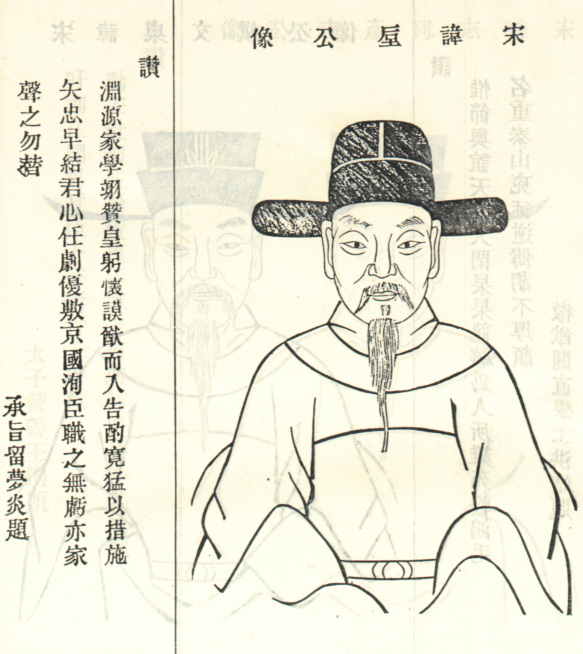 宋諱垕公像
讚
淵源家學翊贊皇躬懷謨猷而入告酌寬猛以措施
矢忠早結君心任劇優敷京國洵臣職之無虧亦家
聲之勿替
承旨留夢炎題